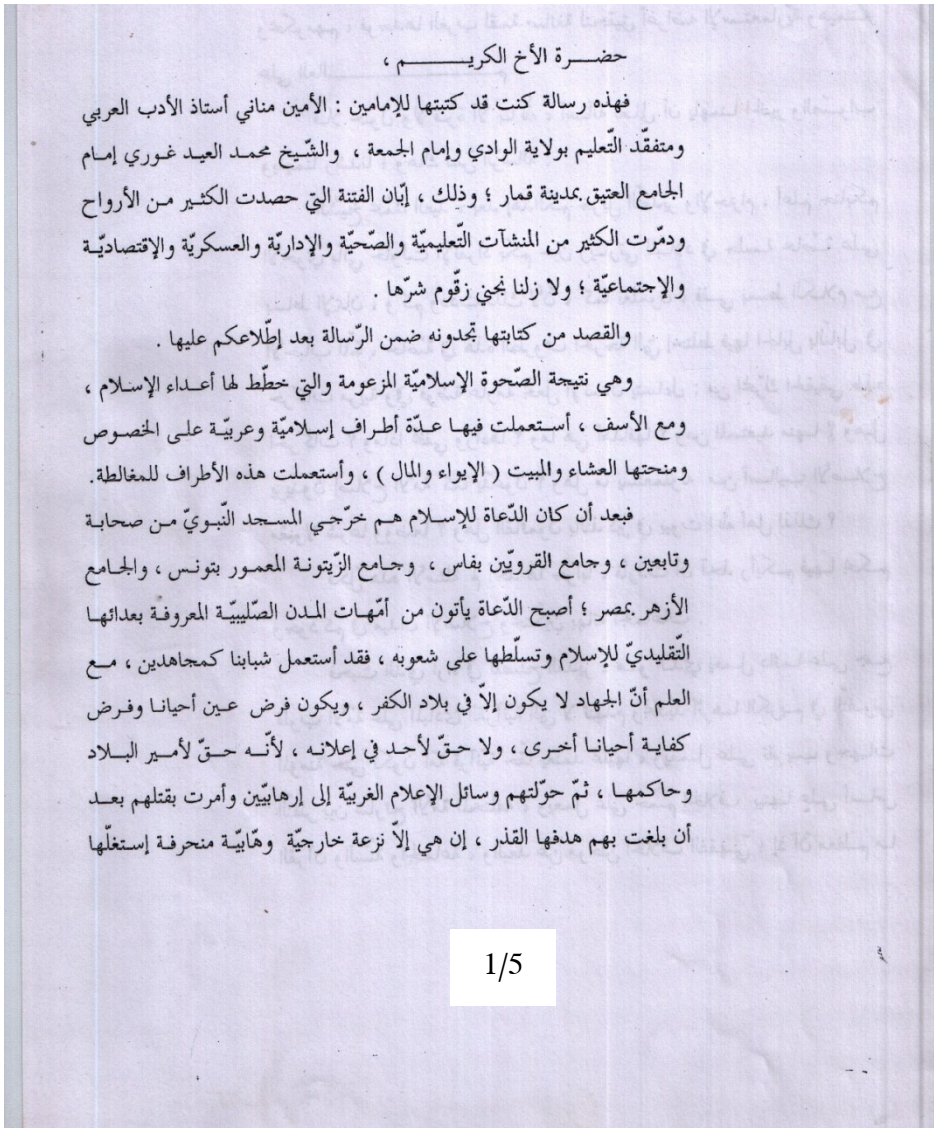 حضـــرة الأخ الكريـــــــم ،
فهذه رسالة كنت قد كتبتها للإمامين : الأمين مناني أستاذ الأدب العربي
ومتفقّد التّعليم بولاية الوادي وإمام الجمعة ، والشّيخ محمد العيد غوري إمام
الجامع العتيق بمدينة قمار ؛ وذلك ، إبّان الفتنة التي حصدت الكثير من الأرواح
ودمّرت الكثير من المنشآت التّعليميّة والصّحيّة والإداريّة والعسكريّة والإقتصاديّة
والإجتماعيّة ؛ ولا زلنا نجني زقّوم شرّها .
والقصد من كتابتها تجدونه ضمن الرّسالة بعد إطّلاعكم عليها .
وهي نتيجة الصّحوة الإسلاميّة المزعومة والتي خطّط لها أعداء الإسلام ،
ومع الأسف ، أستعملت فيها عدّة أطراف إسلاميّة وعربيّة على الخصوص
ومنحتها العشاء والمبيت ( الإيواء والمال ) ، وأستعملت هذه الأطراف للمغالطة.
فبعد أن كان الدّعاة للإسلام هم خرّجي المسجد النّبويّ من صحابة
وتابعين ، وجامع القرويّين بفاس ، وجامع الزّيتونة المعمور بتونس ، والجامع
الأزهر بمصر ؛ أصبح الدّعاة يأتون من أمّهات المدن الصّليبيّة المعروفة بعدائها
التّقليديّ للإسلام وتسلّطها على شعوبه ، فقد أستعمل شبابنا كمجاهدين ، مع
العلم أنّ الجهاد لا يكون إلاّ في بلاد الكفر ، ويكون فرض عين أحيانا وفرض
كفاية أحيانا أخرى ، ولا حقّ لأحد في إعلانه ، لأنّه حقّ لأمير البلاد
وحاكمها ، ثمّ حوّلتهم وسائل الإعلام الغربيّة إلى إرهابيّين وأمرت بقتلهم بعد
أن بلغت بهم هدفها القذر ، إن هي إلاّ نزعة خارجيّة وهّابيّة منحرفة إستغلّها
1/5